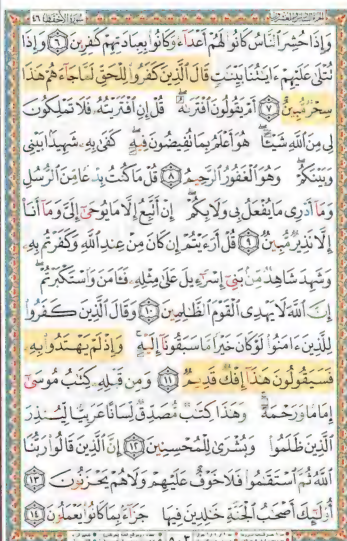 سُورَةُ الأَحْقَافِ ٤٦
وَإِذَا حُشِرَ النَّاسُ كَانُوا لَهُمْ أَعْدَاءً وَكَانُوا بِعِبَادَتِهِمْ كَٰفِرِينَ ٦ وَإِذَا
تُتْلَىٰ عَلَيْهِمْ ءَايَٰتُنَا بَيِّنَٰتٍ قَالَ الَّذِينَ كَفَرُوا لِلْحَقِّ لَمَّا جَاءَهُمْ هَٰذَا
سِحْرٌ مُّبِينٌ ٧ أَمْ يَقُولُونَ افْتَرَىٰهُ قُلْ إِنِ افْتَرَيْتُهُ فَلَا تَمْلِكُونَ
لِي مِنَ اللَّهِ شَيْـًٔا هُوَ أَعْلَمُ بِمَا تُفِيضُونَ فِيهِ كَفَىٰ بِهِ شَهِيدًا بَيْنِي
وَبَيْنَكُمْ وَهُوَ الْغَفُورُ الرَّحِيمُ ٨ قُلْ مَا كُنتُ بِدْعًا مِّنَ الرُّسُلِ
وَمَا أَدْرِي مَا يُفْعَلُ بِي وَلَا بِكُمْ إِنْ أَتَّبِعُ إِلَّا مَا يُوحَىٰ إِلَيَّ وَمَا أَنَا
إِلَّا نَذِيرٌ مُّبِينٌ ٩ قُلْ أَرَءَيْتُمْ إِن كَانَ مِنْ عِندِ اللَّهِ وَكَفَرْتُم بِهِ
وَشَهِدَ شَاهِدٌ مِّن بَنِي إِسْرَٰءِيلَ عَلَىٰ مِثْلِهِ فَـَٔامَنَ وَاسْتَكْبَرْتُمْ
إِنَّ اللَّهَ لَا يَهْدِي الْقَوْمَ الظَّٰلِمِينَ ١٠ وَقَالَ الَّذِينَ كَفَرُوا
لِلَّذِينَ ءَامَنُوا لَوْ كَانَ خَيْرًا مَّا سَبَقُونَا إِلَيْهِ وَإِذْ لَمْ يَهْتَدُوا بِهِ
فَسَيَقُولُونَ هَٰذَا إِفْكٌ قَدِيمٌ ١١ وَمِن قَبْلِهِ كِتَٰبُ مُوسَىٰ
إِمَامًا وَرَحْمَةً وَهَٰذَا كِتَٰبٌ مُّصَدِّقٌ لِّسَانًا عَرَبِيًّا لِّيُنذِرَ
الَّذِينَ ظَلَمُوا وَبُشْرَىٰ لِلْمُحْسِنِينَ ١٢ إِنَّ الَّذِينَ قَالُوا رَبُّنَا
اللَّهُ ثُمَّ اسْتَقَٰمُوا فَلَا خَوْفٌ عَلَيْهِمْ وَلَا هُمْ يَحْزَنُونَ ١٣
أُولَٰئِكَ أَصْحَٰبُ الْجَنَّةِ خَٰلِدِينَ فِيهَا جَزَاءً بِمَا كَانُوا يَعْمَلُونَ ١٤
٥٠٣